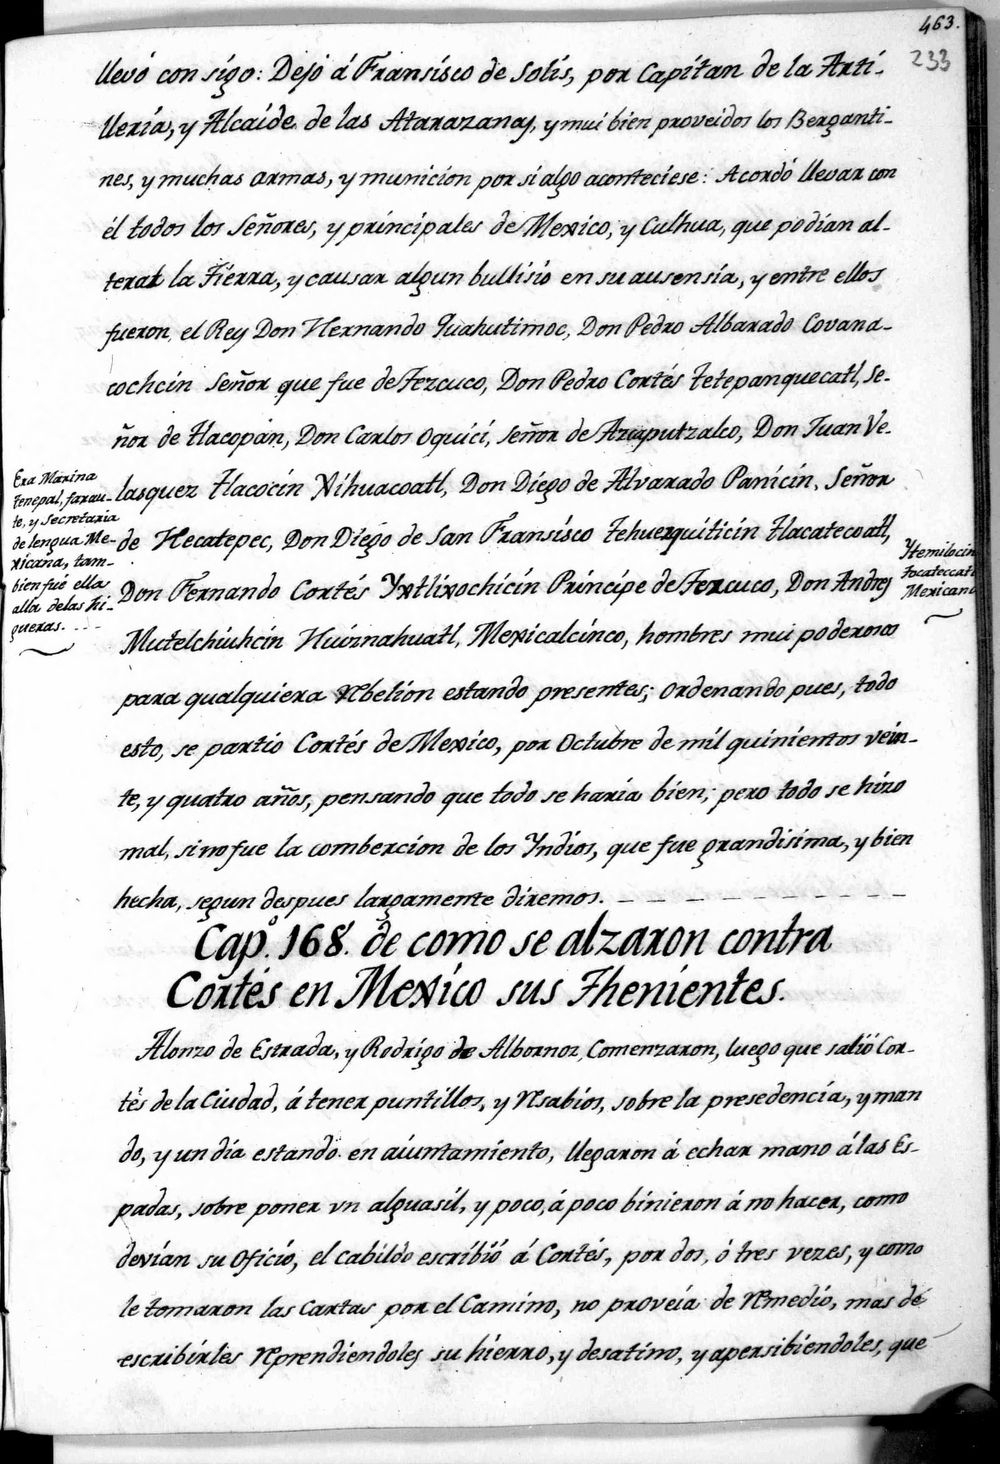 463.
233
llevó con sigo: Dejó á Fransisco de Solis, por Capitan de la Arti-
lleria, y Alcaide de las Atarazanas, y mui bien proveidos los Berganti-
nes, y muchas armas, y municion por si algo aconteciese: Acordó llevar con
él todos los Señores, y principales de Mexico, y Culhua, que podian al-
terar la Tierra, y causar algun bullisio en su ausensia, y entre ellos
fueron el Rey Don Hernando Quahutimoc, Don Pedro Albarado Covana-
cochcin Señor que fue de Tezcuco, Don Pedro Cortés Tetepanquecatl, Se-
ñor de tlacopan, Don Carlos Oquici, Señor de Azcaputzalco, Don Juan Ve-
lasquez Tlacocin Xihuacoatl, Don Diego de Alvarado Panicin, Señor
de Hecatepec, Don Diego de San Fransisco tehuezquiticin tlacatecoatl,
Don Fernando Cortés Yxtlixochicin Principe de Tezcuco, Don Andres
Mutelchiuhcin Huiznahuatl, Mexicalcinco, hombres mui poderosos
para qualquiera rebelion estando presentes; ordenando pues, todo
esto, se partio Cortés de Mexico, por Octubre de mil quinientos vein-
te, y quatro años, pensando que todo se haria bien; pero todo se hizo
mal, si no fue la combercion de los Yndios, que fue grandisima, y bien
hecha, segun despues largamente diremos.
Era Marina
Tenepal, farau-
te, y Secretaria
de lengua Me-
xicana, tam-
bien fué ella
alla de las Hi-
gueras.
Ytemilocin
Tocateccatl
Mexicano
Capº. 168. de como se alzaron contra
Cortés en Mexico sus Thenientes.
Alonzo de Estrada, y Rodrigo de Albornoz, Comenzaron, luego que salió Cor-
tés de la Ciudad, á tener puntillos, y resabios, sobre la presedencia, y man
do, y un dia estando en aiuntamiento, llegaron á echar mano á las Es-
padas, sobre poner vn alguasil, y poco, á poco binieron á no hacer, como
devian su Oficio, el Cabildo escribió á Cortés, por dos, ó tres vezes, y como
le tomaron las Cartas por el Camino, no proveia de remedio, mas de
escribirles reprendiendoles su hierro, y desatino, y apersibiendoles, que